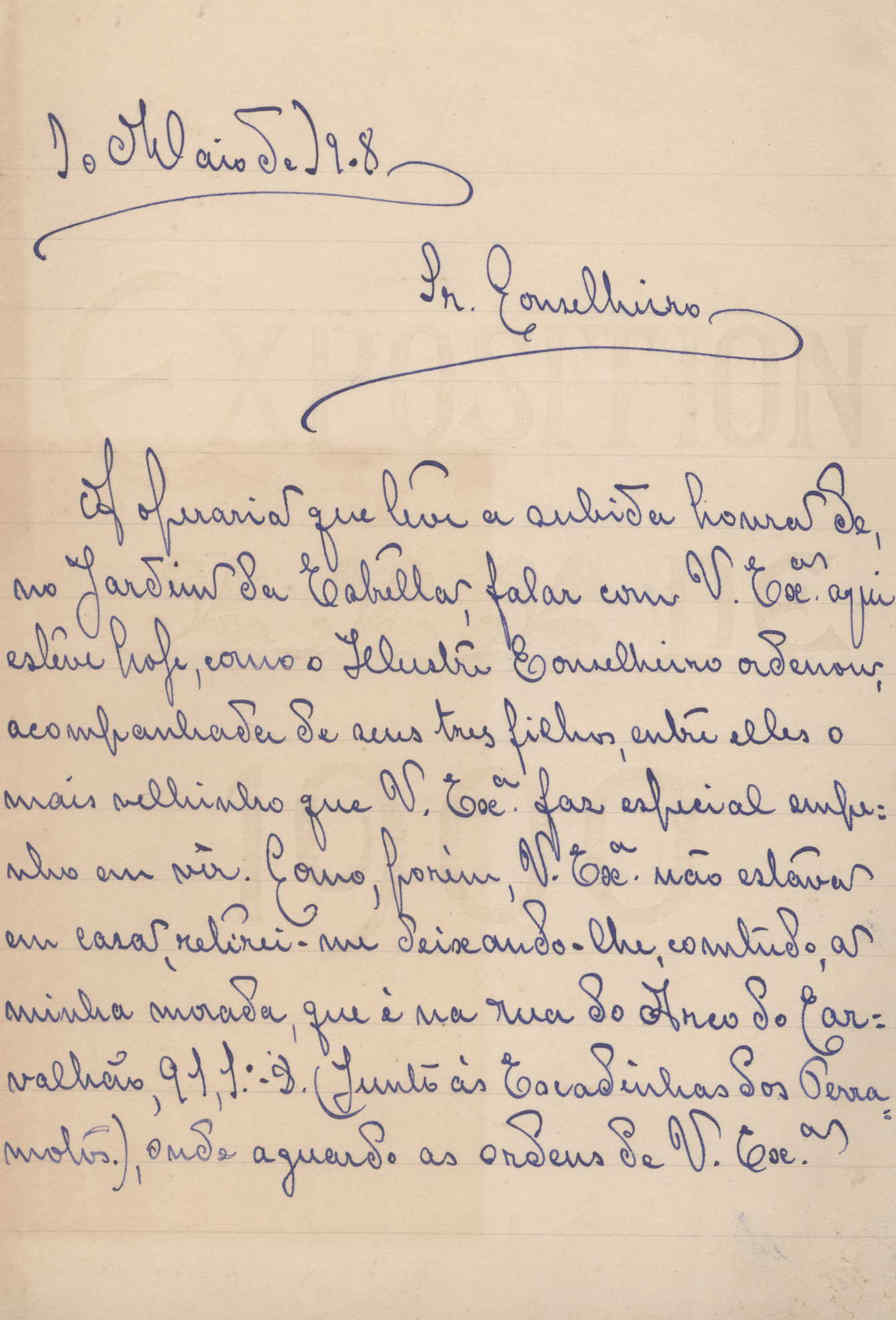 10 Maio de 19.8
Sr. Conselheiro
A operaria que têve a subida honra de,
no Jardim da Estrella, falar com V. Exª. aqui
estêve hoje, como o Illustre Conselheiro ordenou,
acompanhada de seus tres filhos, entre elles o
mais velhinho que V. Exª. faz especial empe=
nho em vêr. Como, porém, V. Exª. não estáva
em casa, retirei-me deixando-lhe, comtudo, a
minha morada, que é na rua do Arco do Car=
valhão, 91, 1.º-D. (Junto ás Escadinhas dos Terra=
motos.), onde aguardo as ordens de V. Ex.ª
EXPOSITION